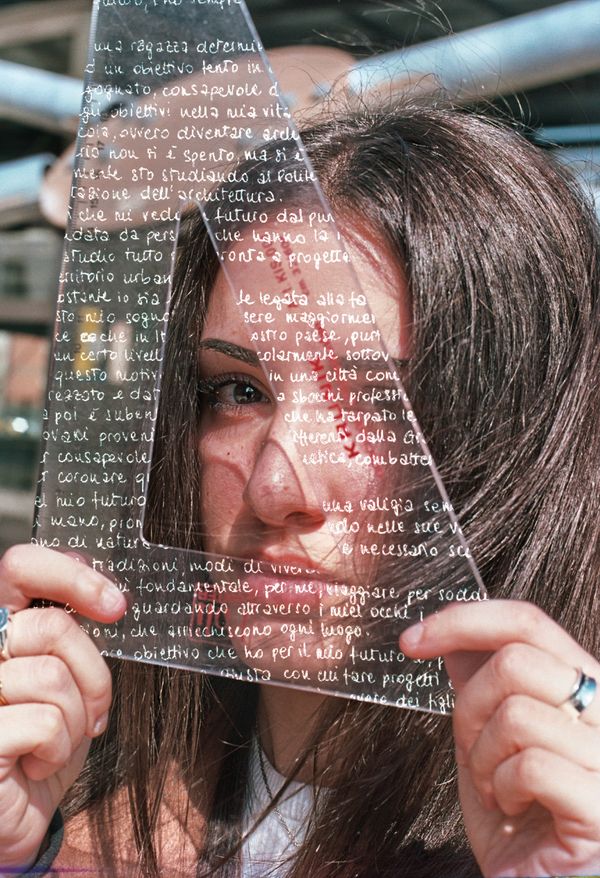 futuro, ho sempre
una ragazza determin
d un obiettivo tento in
gognato, consapevole d
gli obiettivi nella mia vita
cola, ovvero diventare arch
rio non si è spento, ma si è
mente sto studiando al Polite
tazione dell'architettura.
i che mi vede futuro dal pun
data da pers che hanno la
studio tutto ronta a progette
erritorio urban
ostante io sia le legata alla fa
sto mio sogno sere maggiormen
ce anche in It ostro paese, purt
un certo livell colarmente sottov
questo motiv in una città com
rezzato e dat a sbocchi professi
a poi è suben che ha tarpato le
ovani proveni ifferent dalla
r consapevole istica, combatter
r coronare q
el mio futuro una valigia sem
i mano, pron ndo nelle sue v
ano di natura è necessario sc
tradizioni, modi di vivere
fondamentale, per me, viaggiare per soddi
guardando attraverso i miei occhi i
ioni, che arricchiscono ogni luogo.
ore obiettivo che ho per il mio futuro
giusta con cui fare progetti
avere dei figli